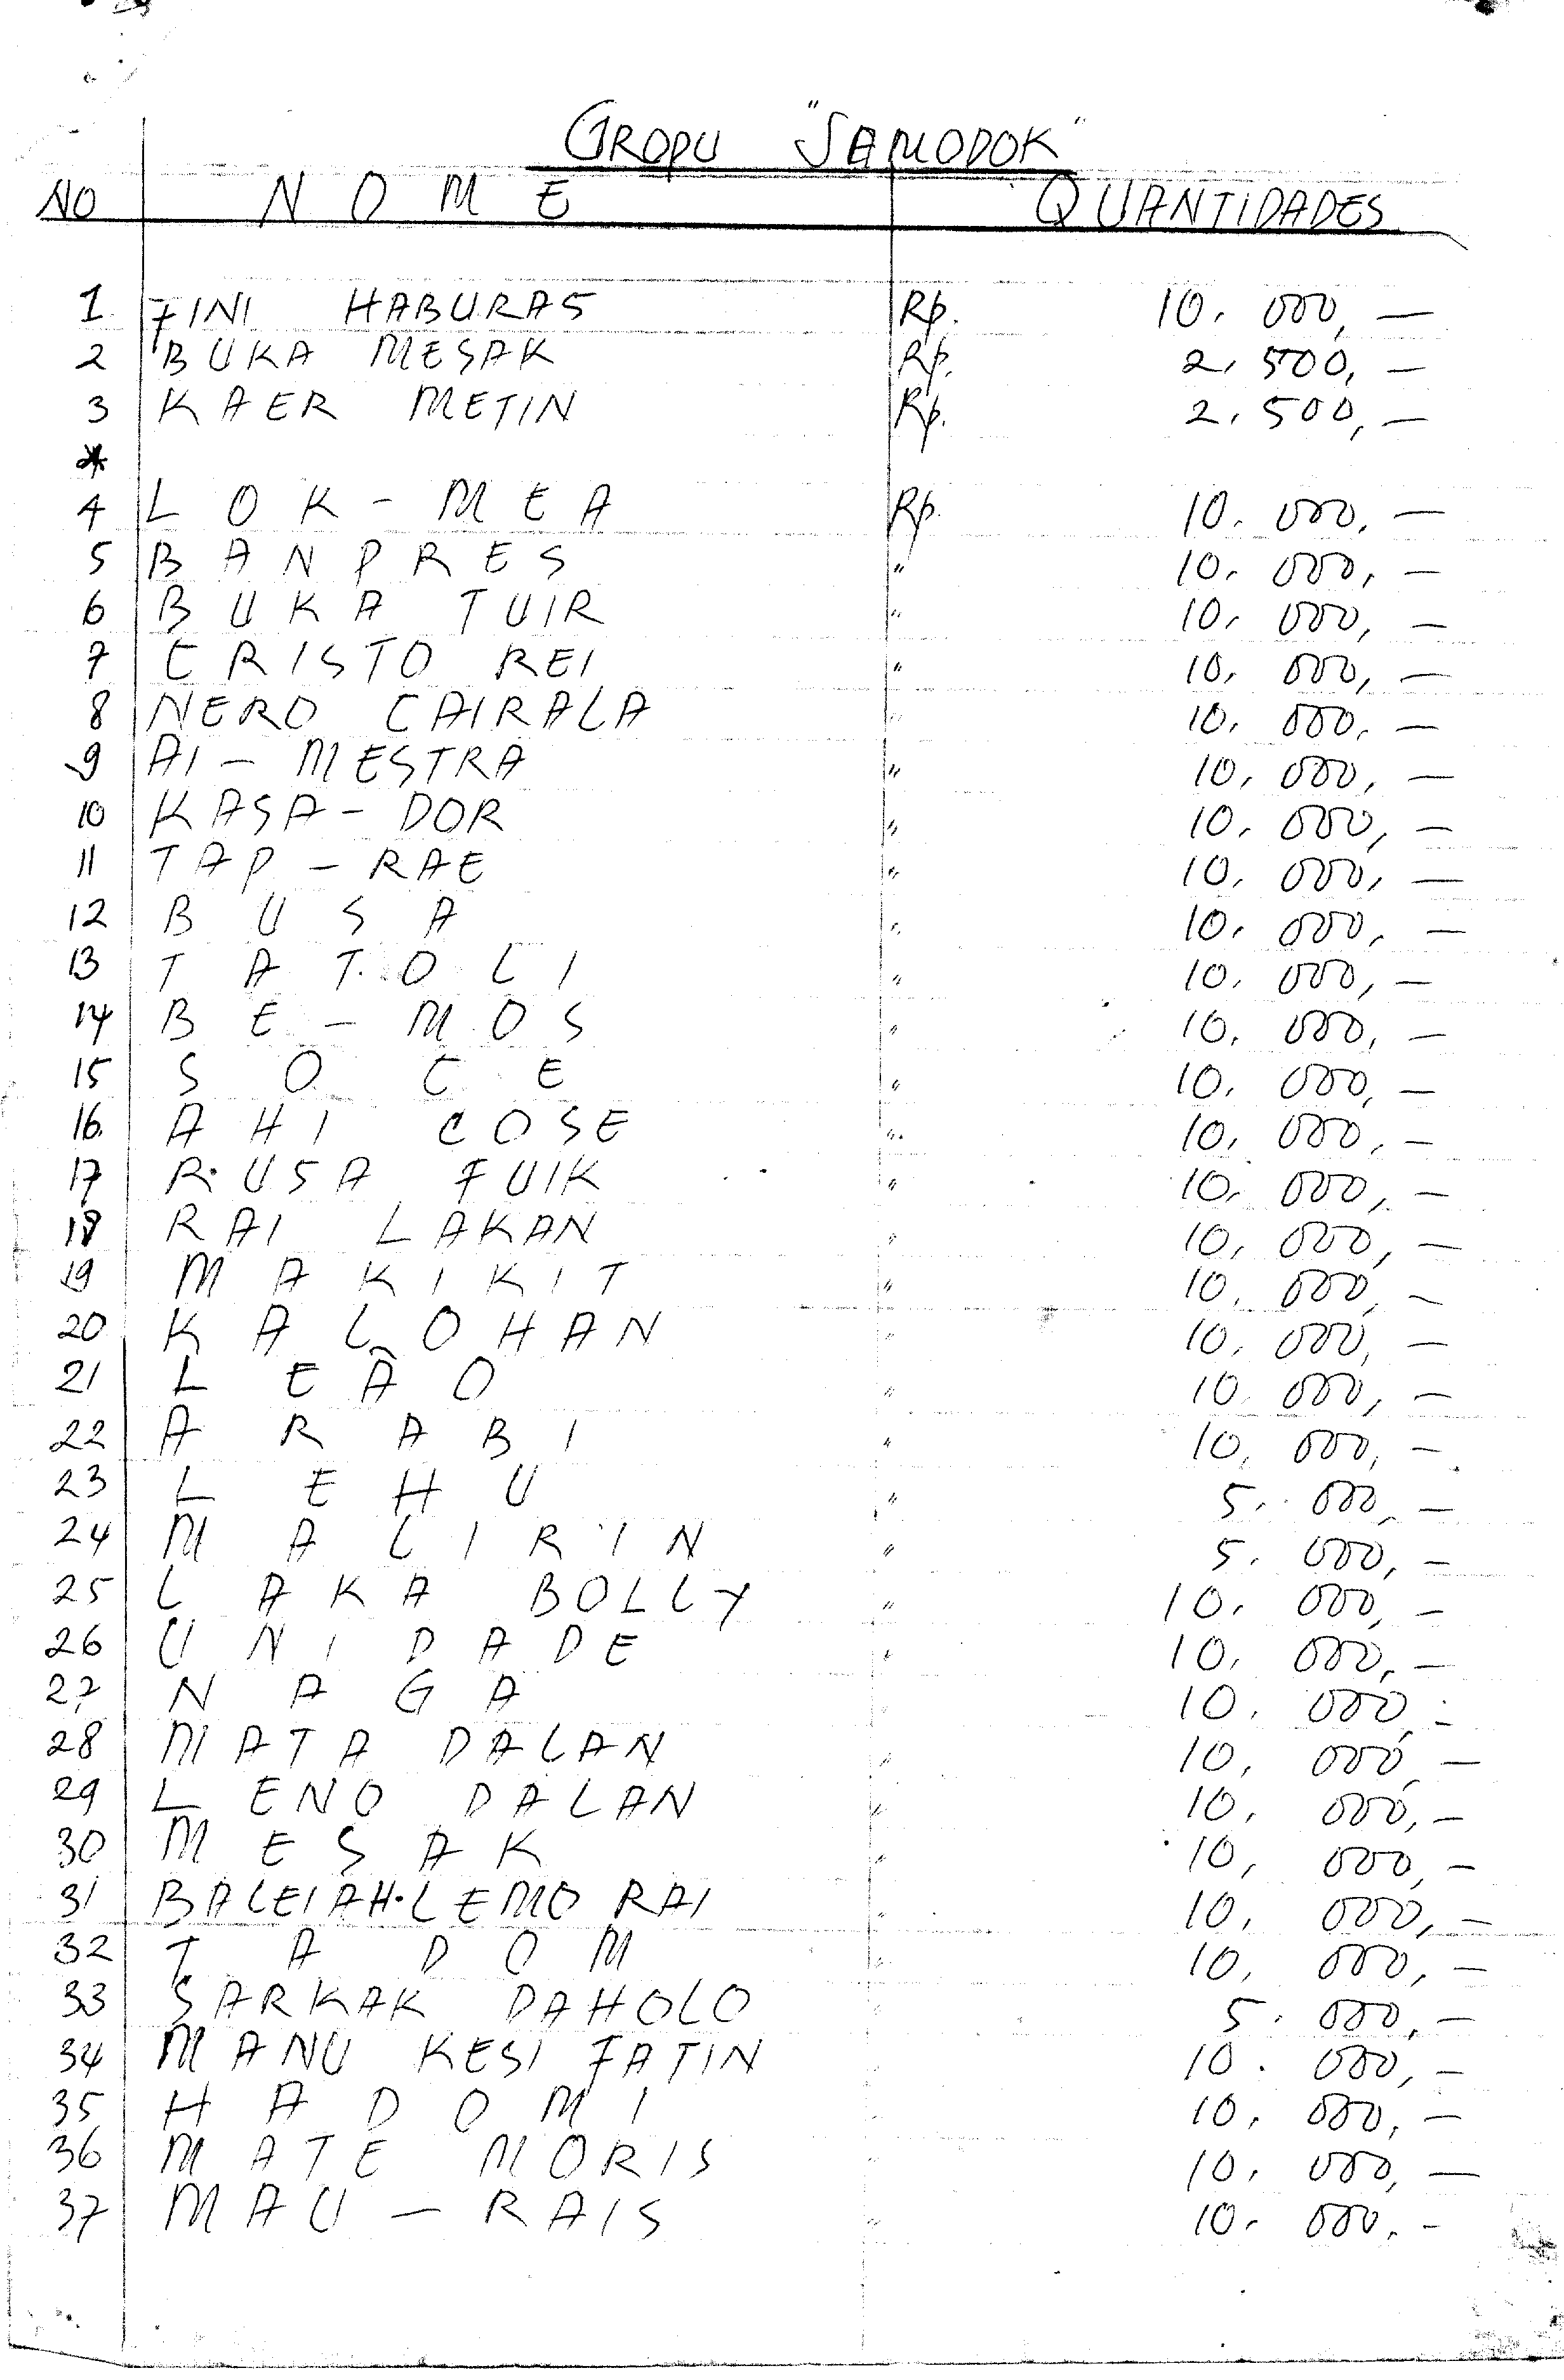 GROPU "SAMODOK"
NO NOME QUANTIDADES
1 FINI HABURAS Rp. 10.000,—
2 BUKA MESAK Rp. 2.500,—
3 KAER METIN Rp. 2.500,—
*
4 LOK-MEA Rp. 10.000,—
5 BANPRES " 10.000,—
6 BUKA TUIR " 10.000,—
7 CRISTO REI " 10.000,—
8 NERO CAIRALA " 10.000,—
9 AI-MESTRA " 10.000,—
10 KASA-DOR " 10.000,—
11 TAP-RAE " 10.000,—
12 BUSA " 10.000,—
13 TATOLI " 10.000,—
14 BE-MOS " 10.000,—
15 SOCE " 10.000,—
16. AHI COSE " 10.000,—
17 RUSA FUIK " 10.000,—
18 RAI LAKAN " 10.000,—
19 MAKIKIT " 10.000,—
20 KALOHAN " 10.000,—
21 LEÃO " 10.000,—
22 ARABI " 10.000,—
23 LEHU " 5.000,—
24 MALIRIN " 5.000,—
25 LAKA BOLLY " 10.000,—
26 UNIDADE " 10.000,—
27 NAGA " 10.000,—
28 MATA DALAN " 10.000,—
29 LENO DALAN " 10.000,—
30 MESAK " 10.000,—
31 BALEIAH.LEMO RAI " 10.000,—
32 TADOM " 10.000,—
33 SARKAK DAHOLO " 5.000,—
34 MANU KESI FATIN " 10.000,—
35 HADOMI " 10.000,—
36 MATE MORIS " 10.000,—
37 MAU-RAIS " 10.000,—